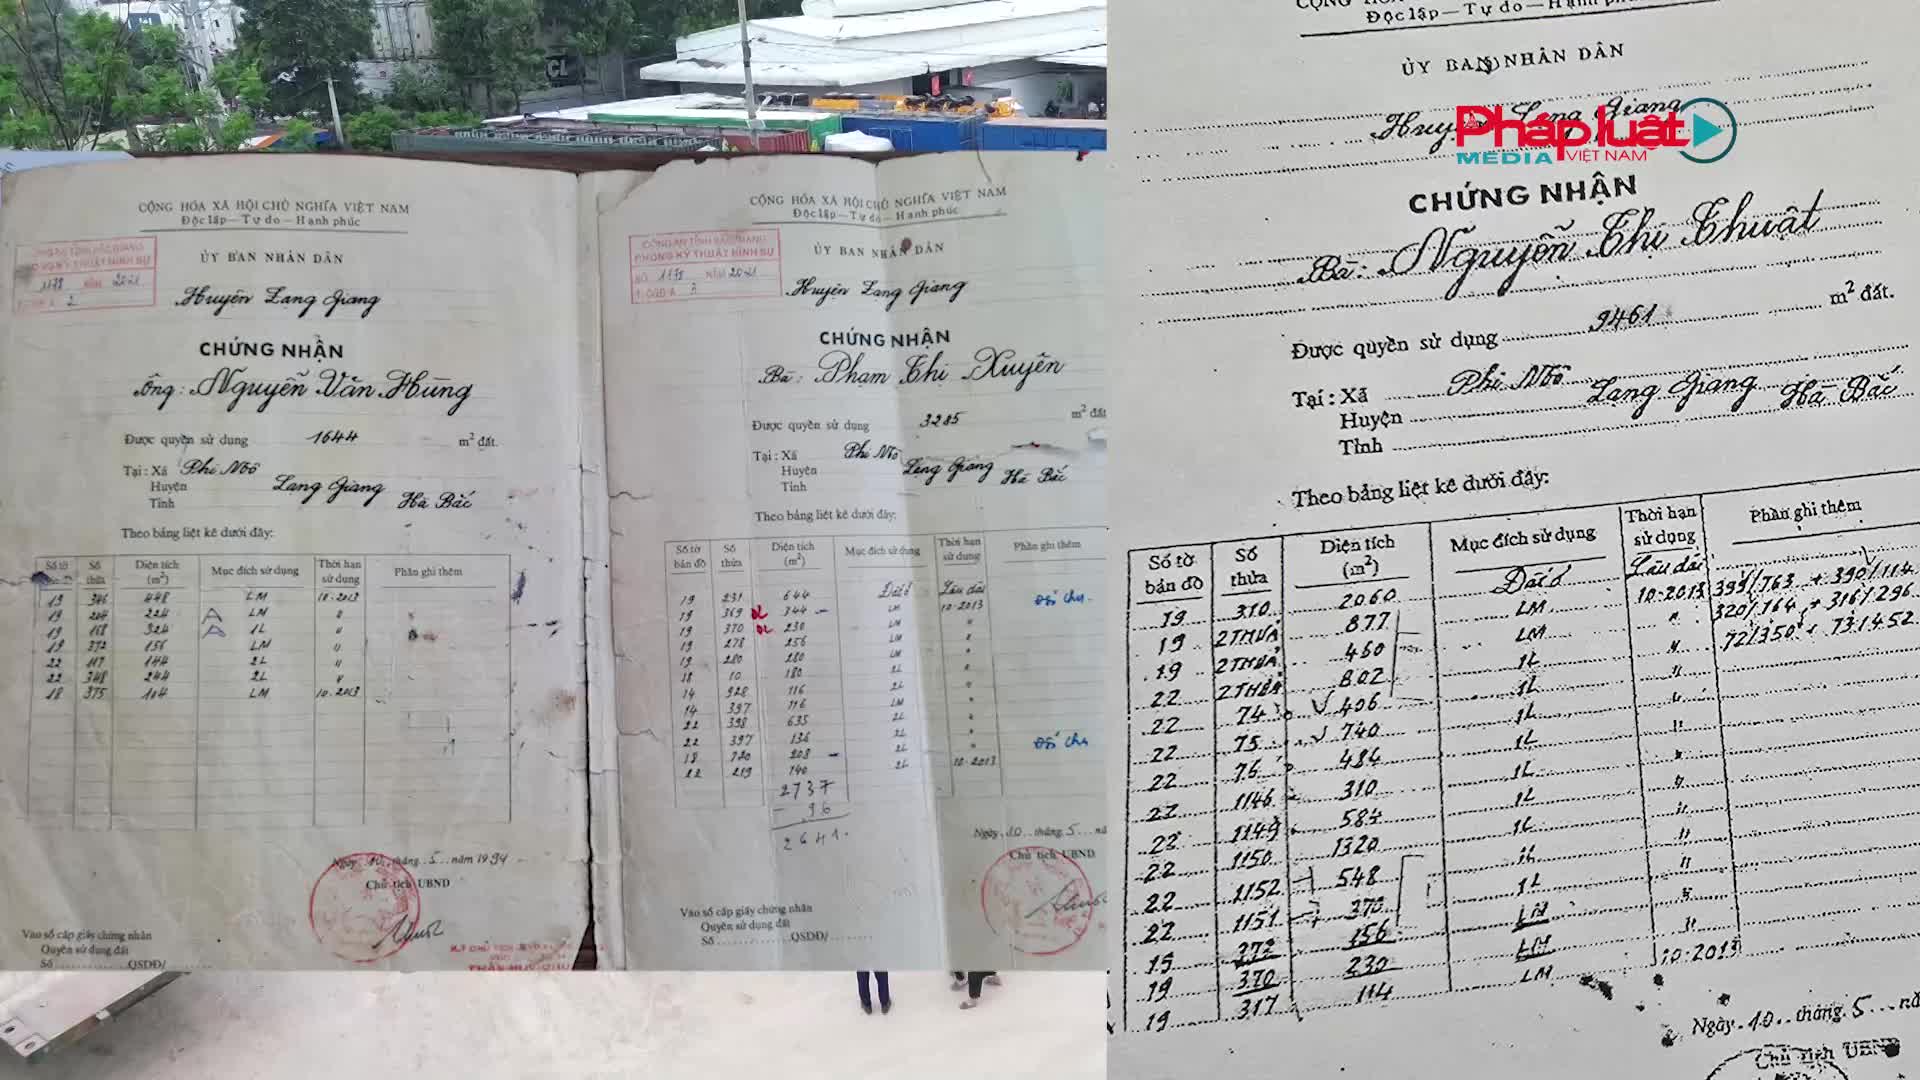 CỘNG HÒA XÃ HỘI CHỦ NGHĨA VIỆT NAM
Độc lập — Tự do — Hạnh phúc
ỦY BAN NHÂN DÂN
Huyện Lạng Giang
CHỨNG NHẬN
Ông: Nguyễn Văn Hùng
Được quyền sử dụng 1644 m² đất.
Tại: Xã Phi Mô
Huyện Lạng Giang
Tỉnh Hà Bắc
Theo bảng liệt kê dưới đây:
Số tờ Số thửa Diện tích (m²) Mục đích sử dụng Thời hạn sử dụng Phần ghi thêm
19 346 448 LM 10-2013
19 204 224 LM "
19 158 324 1L "
19 372 156 LM "
22 117 144 2L "
22 348 244 2L "
18 375 104 LM 10-2013
Ngày 10 tháng 5 năm 1994
Chủ tịch UBND
Vào sổ cấp giấy chứng nhận
Quyền sử dụng đất
Số QSDĐ/
CỘNG HÒA XÃ HỘI CHỦ NGHĨA VIỆT NAM
Độc lập — Tự do — Hạnh phúc
CÔNG AN TỈNH BẮC GIANG
PHÒNG KỸ THUẬT HÌNH SỰ
SỐ 1178 NĂM 2021
ỦY BAN NHÂN DÂN
Huyện Lạng Giang
CHỨNG NHẬN
Bà: Phạm Thị Xuyên
Được quyền sử dụng 3285 m² đất
Tại: Xã Phi Mô
Huyện Lạng Giang
Tỉnh Hà Bắc
Theo bảng liệt kê dưới đây:
Số tờ bản đồ Số thửa Diện tích (m²) Mục đích sử dụng Thời hạn sử dụng Phần ghi thêm
19 231 644 Đất ở Lâu dài
19 369 344 LM 10-2013
19 370 230 LM "
19 278 256 LM "
19 280 280 LM "
18 10 180 2L "
14 928 116 2L "
14 397 116 LM "
22 398 635 2L "
22 397 136 2L "
18 720 208 2L "
22 219 140 2L 10-2013
2737
- 96
2641.
Ngày 10 tháng 5
Chủ tịch UBND
Vào sổ cấp giấy chứng nhận
Quyền sử dụng đất
Số QSDĐ/
Độc lập — Tự do —
ỦY BAN NHÂN DÂN
Huyện Lạng Giang
Pháp luật
MEDIA VIỆT NAM
CHỨNG NHẬN
Bà: Nguyễn Thị Thuật
Được quyền sử dụng 9461 m² đất.
Tại: Xã Phi Mô
Huyện Lạng Giang
Tỉnh Hà Bắc
Theo bảng liệt kê dưới đây:
Số tờ bản đồ Số thửa Diện tích (m²) Mục đích sử dụng Thời hạn sử dụng Phần ghi thêm
19 310 2060 Đất ở Lâu dài
19 2THỬA 877 LM 10-2013 399/763 + 390/114
19 2THỬA 460 LM " 320/164 + 316/296
22 2THỬA 802 1L " 72/350 + 73/452
22 74 406 1L "
22 75 740 1L "
22 76 484 1L "
22 1146 310 1L "
22 1149 584 1L "
22 1150 1320 1L "
22 1152 548 1L "
22 1151 370 1L "
15 372 156 LM "
19 370 230 LM "
19 317 114 LM 10-2013
Ngày 10 tháng 5
Chủ tịch UBND